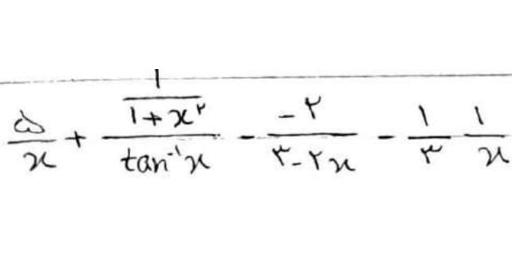 ۵/x + (۱/(۱+x^۲))/(tan^-۱ x) - (-۲)/(۳-۲x) - ۱/۳ ۱/x